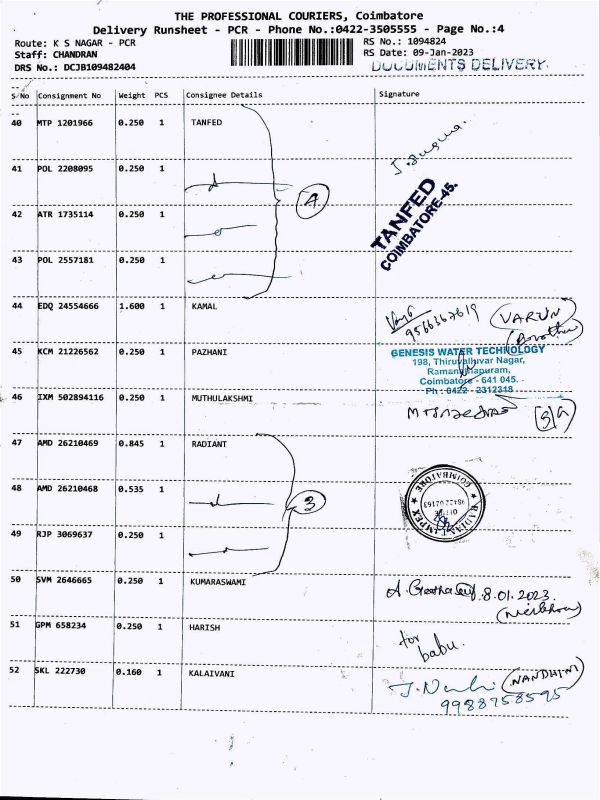 THE PROFESSIONAL COURIERS, Coimbatore
Delivery Runsheet - PCR - Phone No.:0422-3505555 - Page No.:4
Route: K S NAGAR - PCR
Staff: CHANDRAN
DRS No.: DCJB109482404
RS No.: 1094824
RS Date: 09-Jan-2023
DOCUMENTS DELIVERY.
S/No Consignment No Weight PCS Consignee Details Signature
40 MTP 1201966 0.250 1 TANFED
41 POL 2208095 0.250 1
4
TANFED
COIMBATORE-45.
42 ATR 1735114 0.250 1
43 POL 2557181 0.250 1
44 EDQ 24554666 1.600 1 KAMAL
9566367619 (VARUN)
45 KCM 21226562 0.250 1 PAZHANI
GENESIS WATER TECHNOLOGY
198, Thiruvalluvar Nagar,
Ramanathapuram,
Coimbatore - 641 045.
Ph : 0422 - 2312318
46 IXM 502894116 0.250 1 MUTHULAKSHMI
47 AMD 26210469 0.845 1 RADIANT
48 AMD 26210468 0.535 1
3
RADIANT IMPEX
COIMBATORE
49 RJP 3069637 0.250 1
50 SVM 2646665 0.250 1 KUMARASWAMI
8.01.2023.
51 GPM 658234 0.250 1 HARISH
for
babu.
52 SKL 222730 0.160 1 KALAIVANI
(NANDHINI)
9988758595